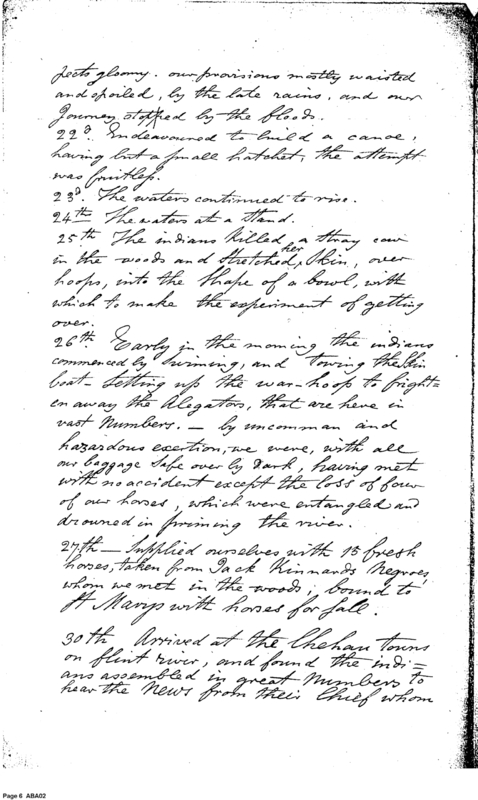 jects gloomy. our provisions mostly waisted
and spoiled, by the late rains, and our
Journey stopped by the floods.
22d. Endeavoured to build a canoe,
having but a small hatchet, the attempt
was fruitless.
23d. The waters continued to rise.
24th The waters at a stand.
25th The indians killed a stray cow
in the woods and stretched her skin, over
hoops, into the shape of a bowl, with
which to make the experiment of getting
over.
26th. Early in the morning the indians
commenced by swiming, and towing the skin
boat – setting up the war-hoop to fright=
en away the Alegators, that are here in
vast numbers. – by uncomman and
hazardous exertion, we were, with all
our baggage safe over by Dark, having met
with no accident except the loss of four
of our horses, which were entangled and
drowned in swiming the river.
27th – Supplied ourselves with 15 fresh
horses, taken from Jack Kinnards Negroes,
whom we met in the woods, bound to
St Marys with horses for sale.
30th Arrived at the Chehau towns
on flint river, and found the indi=
ans assembled in great numbers to
hear the News from their Chief whom
Page 6 ABA02